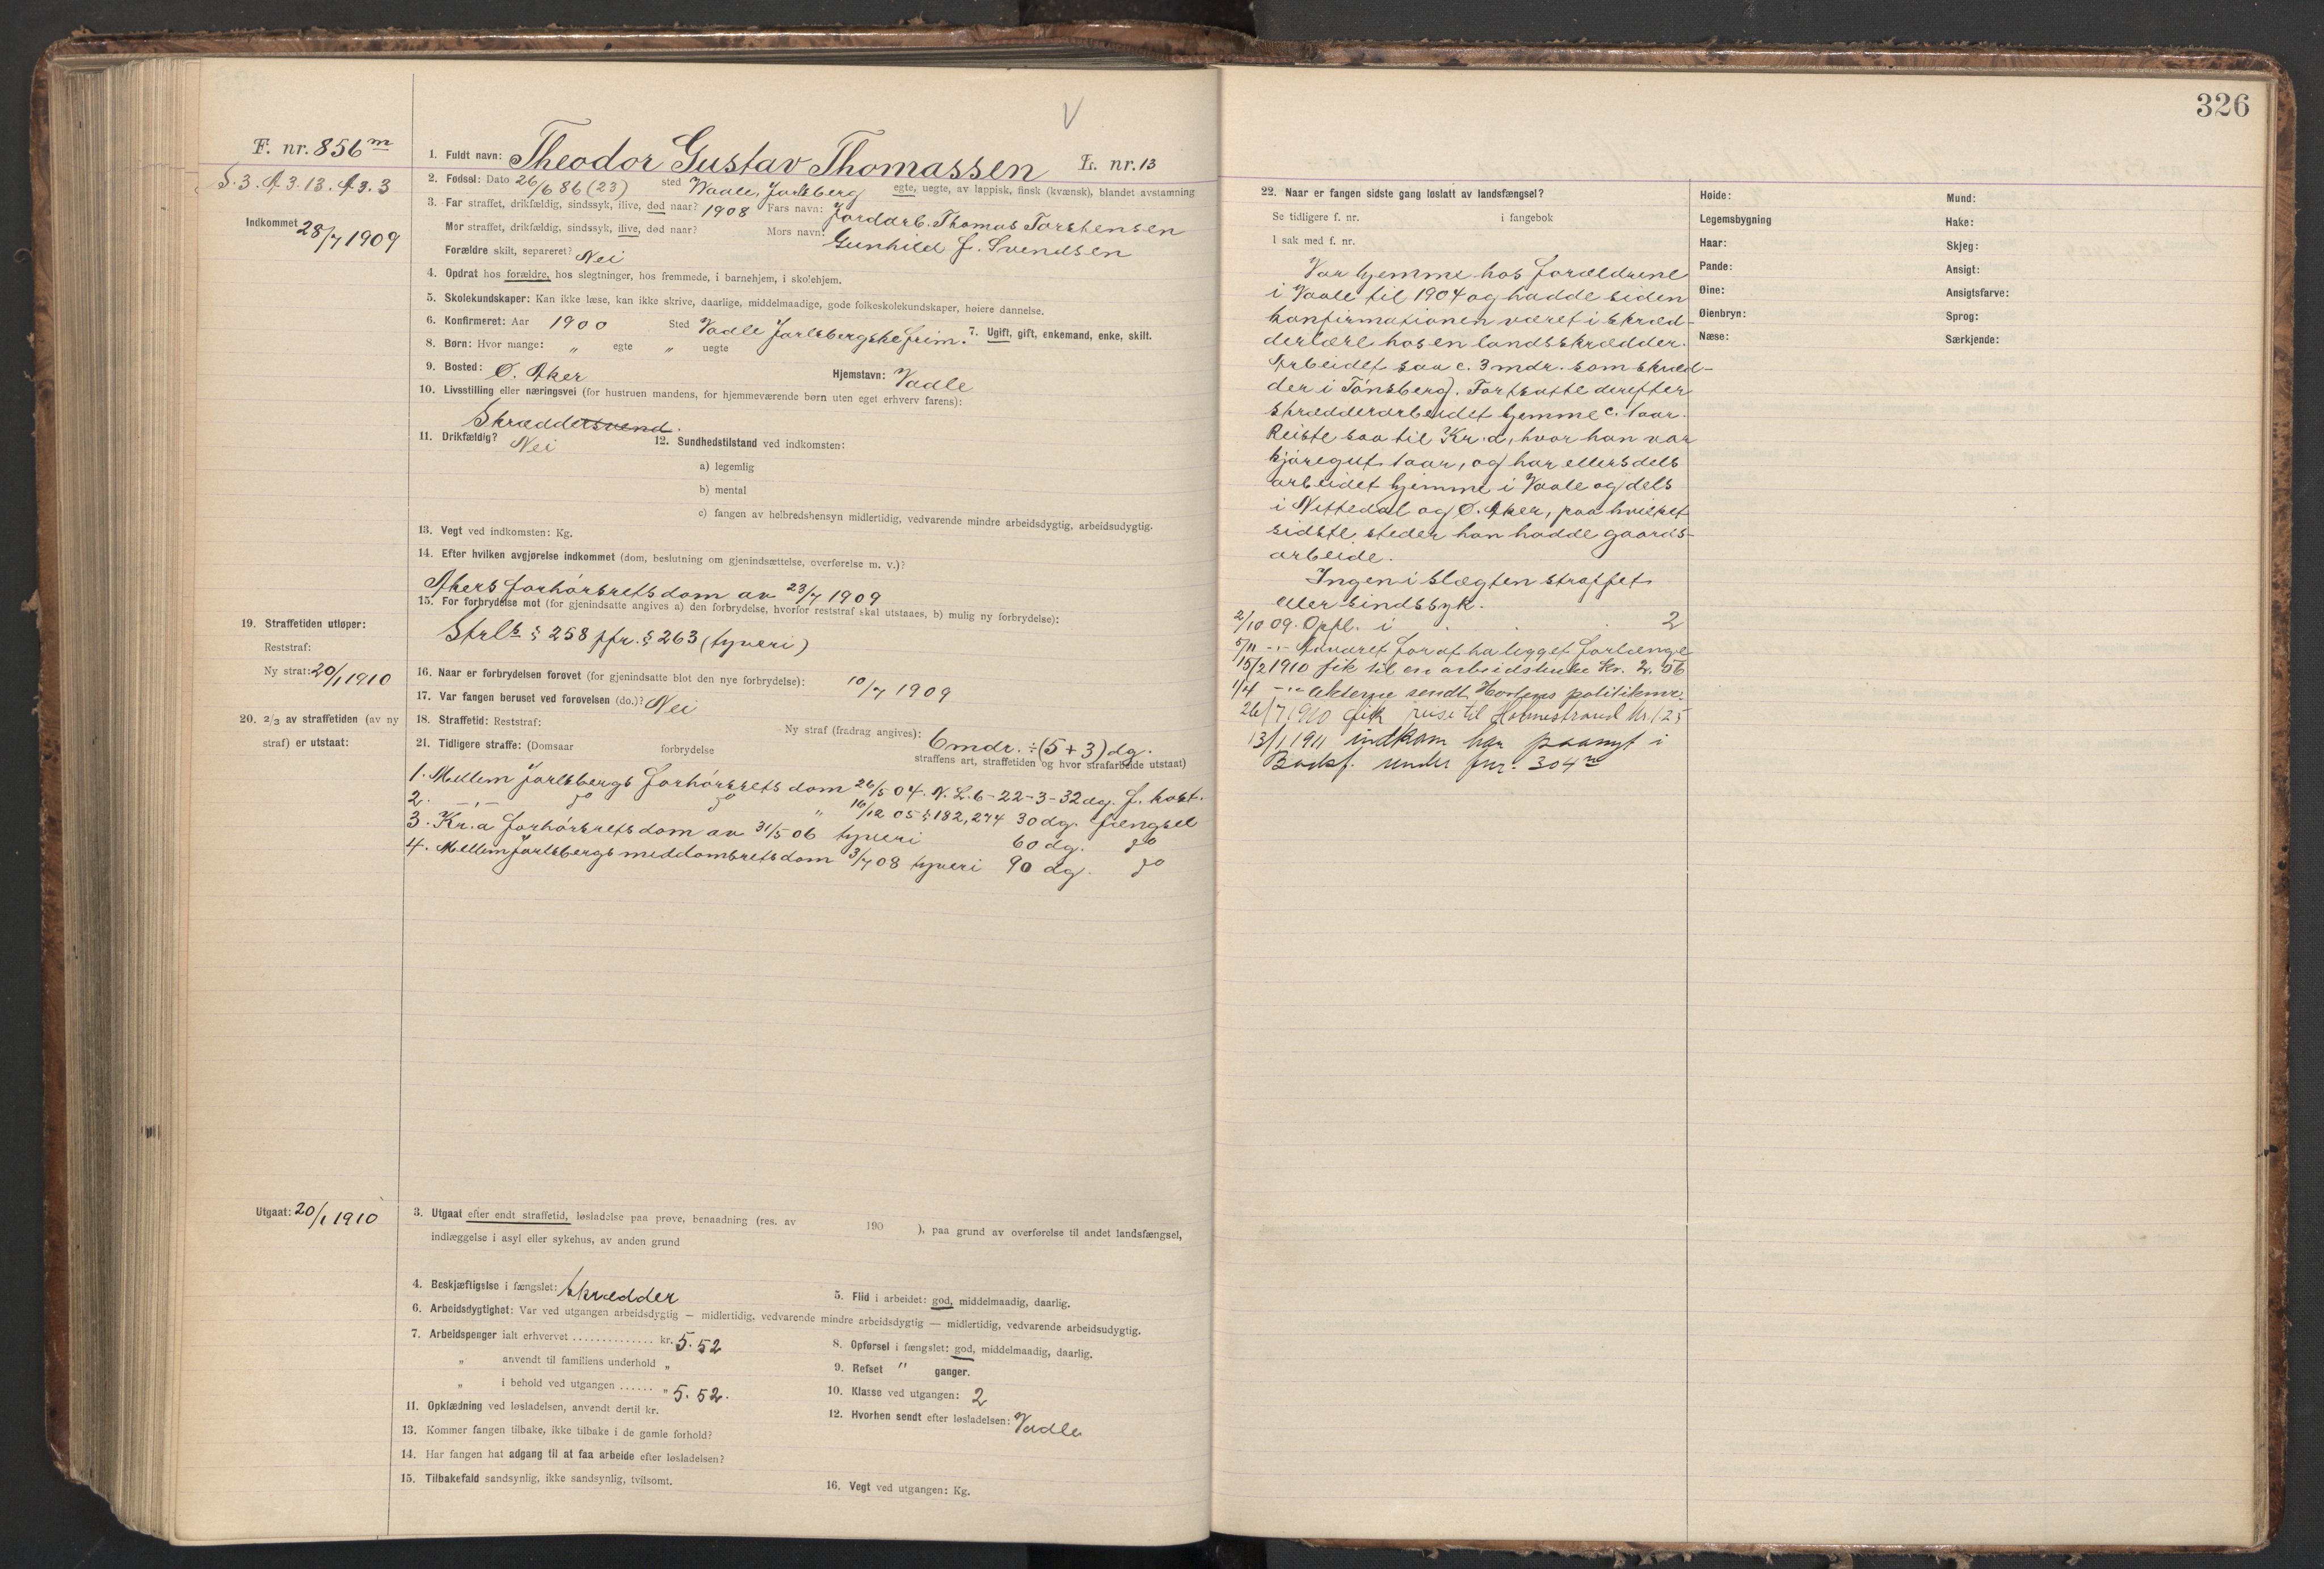 326
V
F. nr. 856 m
1. Fuldt navn: Theodor Gustav Thomassen L. nr. 13
S. 3. A 3. 13. A 3. 3
2. Fødsel: Dato 26/6 86 (23) sted Vaale, Jarlsberg egte, uegte, av lappisk, finsk (kvænsk), blandet avstamning
Indkommet 28/7 1909
3. Far straffet, drikfældig, sindssyk, ilive, død naar? 1908 Fars navn: Jordarb. Thomas Torstensen
Mor straffet, drikfældig, sindssyk, ilive, død naar? Mors navn: Gunhild J. Svendsen
Forældre skilt, separeret? Nei
4. Opdrat hos forældre, hos slegtninger, hos fremmede, i barnehjem, i skolehjem.
5. Skolekundskaper: Kan ikke læse, kan ikke skrive, daarlige, middelmaadige, gode folkeskolekundskaper, høiere dannelse.
6. Konfirmeret: Aar 1900 Sted Vadle Jarlsberg 7. Ugift, gift, enkemand, enke, skilt.
8. Børn: Hvor mange: " egte " uegte
9. Bosted: Ø. Aker Hjemstavn: Vadle
10. Livsstilling eller næringsvei (for hustruen mandens, for hjemmeværende børn uten eget erhverv farens):
Skræddersvend.
11. Drikfældig? Nei 12. Sundhedstilstand ved indkomsten:
a) legemlig
b) mental
c) fangen av helbredshensyn midlertidig, vedvarende mindre arbeidsdygtig, arbeidsudygtig.
13. Vegt ved indkomsten: Kg.
14. Efter hvilken avgjørelse indkommet (dom, beslutning om gjenindsættelse, overførelse m. v.)?
Akers forhørsretsdom av 23/7 1909
15. For forbrydelse mot (for gjenindsatte angives a) den forbrydelse, hvorfor reststraf skal utstaaes, b) mulig ny forbrydelse):
Strl § 258 jfr. § 263 (tyveri)
19. Straffetiden utløper:
Reststraf:
Ny straf: 20/1 1910
16. Naar er forbrydelsen forøvet (for gjenindsatte blot den nye forbrydelse): 10/7 1909
17. Var fangen beruset ved forøvelsen (do.)? Nei
20. 2/3 av straffetiden (av ny
straf) er utstaat:
18. Straffetid: Reststraf: Ny straf (fradrag angives): 6 mdr. ÷ (5 + 3) dg.
21. Tidligere straffe: (Domsaar forbrydelse straffens art, straffetiden og hvor strafarbeide utstaat)
1. Mellem Jarlsbergs forhørsrets dom 26/5 04. N. L. 6-22-3-32 dg. f. kost.
2. -"- do do " 16/12 05 § 182, 274 30 dg. fængsel
3. Kr.a forhørsretsdom av 31/5 06 tyveri 60 dg. do
4. Mellem Jarlsbergs meddomsretsdom 3/7 08 tyveri 90 dg. do
Utgaat: 20/1 1910
3. Utgaat efter endt straffetid, løsladelse paa prøve, benaadning (res. av 190 ), paa grund av overførelse til andet landsfængsel,
indlæggelse i asyl eller sykehus, av anden grund
4. Beskjæftigelse i fængslet: Skrædder 5. Flid i arbeidet: god, middelmaadig, daarlig.
6. Arbeidsdygtighet: Var ved utgangen arbeidsdygtig — midlertidig, vedvarende mindre arbeidsdygtig — midlertidig, vedvarende arbeidsudygtig.
7. Arbeidspenger ialt erhvervet .............. kr. 5.52 8. Opførsel i fængslet: god, middelmaadig, daarlig.
" anvendt til familiens underhold " 9. Refset " ganger.
" i behold ved utgangen ...... " 5.52. 10. Klasse ved utgangen: 2
11. Opklædning ved løsladelsen, anvendt dertil kr. 12. Hvorhen sendt efter løsladelsen: Vadle
13. Kommer fangen tilbake, ikke tilbake i de gamle forhold?
14. Har fangen hat adgang til at faa arbeide efter løsladelsen?
15. Tilbakefald sandsynlig, ikke sandsynlig, tvilsomt. 16. Vegt ved utgangen: Kg.
22. Naar er fangen sidste gang løslatt av landsfængsel?
Se tidligere f. nr. i fangebok
I sak med f. nr.
Var hjemme hos forældrene
i Vaale til 1904 og hadde siden
konfirmationen været i skræd-
derlære hos en landsskrædder.
Arbeidet saa c. 3 mdr. som skræd-
der i Tønsberg. Fortsatte derefter
skrædderarbeidet hjemme c. 1 aar.
Reiste saa til Kr.a, hvor han var
kjøregut 1 aar, og har ellers dels
arbeidet hjemme i Vaale og dels
i Nittedal og Ø. Aker, paa hvilket
sidste steder han hadde gaards-
arbeide.
Ingen i slægten straffet
eller sindssyk.
2/10 09. Opfl. i . . . 2
5/11 -"- for at ha ligget forlænge
15/2 1910 fik til en arbeidsbukse Kr. 2.56
1/4 -"- Akterne sendt Hortens politikm.
26/7 1910 fik reise til Holmestrand Kr. 1.25
13/1 1911 indkom har paanyt i
Bodsf. under fnr. 304 n
Høide:
Legemsbygning
Haar:
Pande:
Øine:
Øienbryn:
Næse:
Mund:
Hake:
Skjeg:
Ansigt:
Ansigtsfarve:
Sprog:
Særkjende: